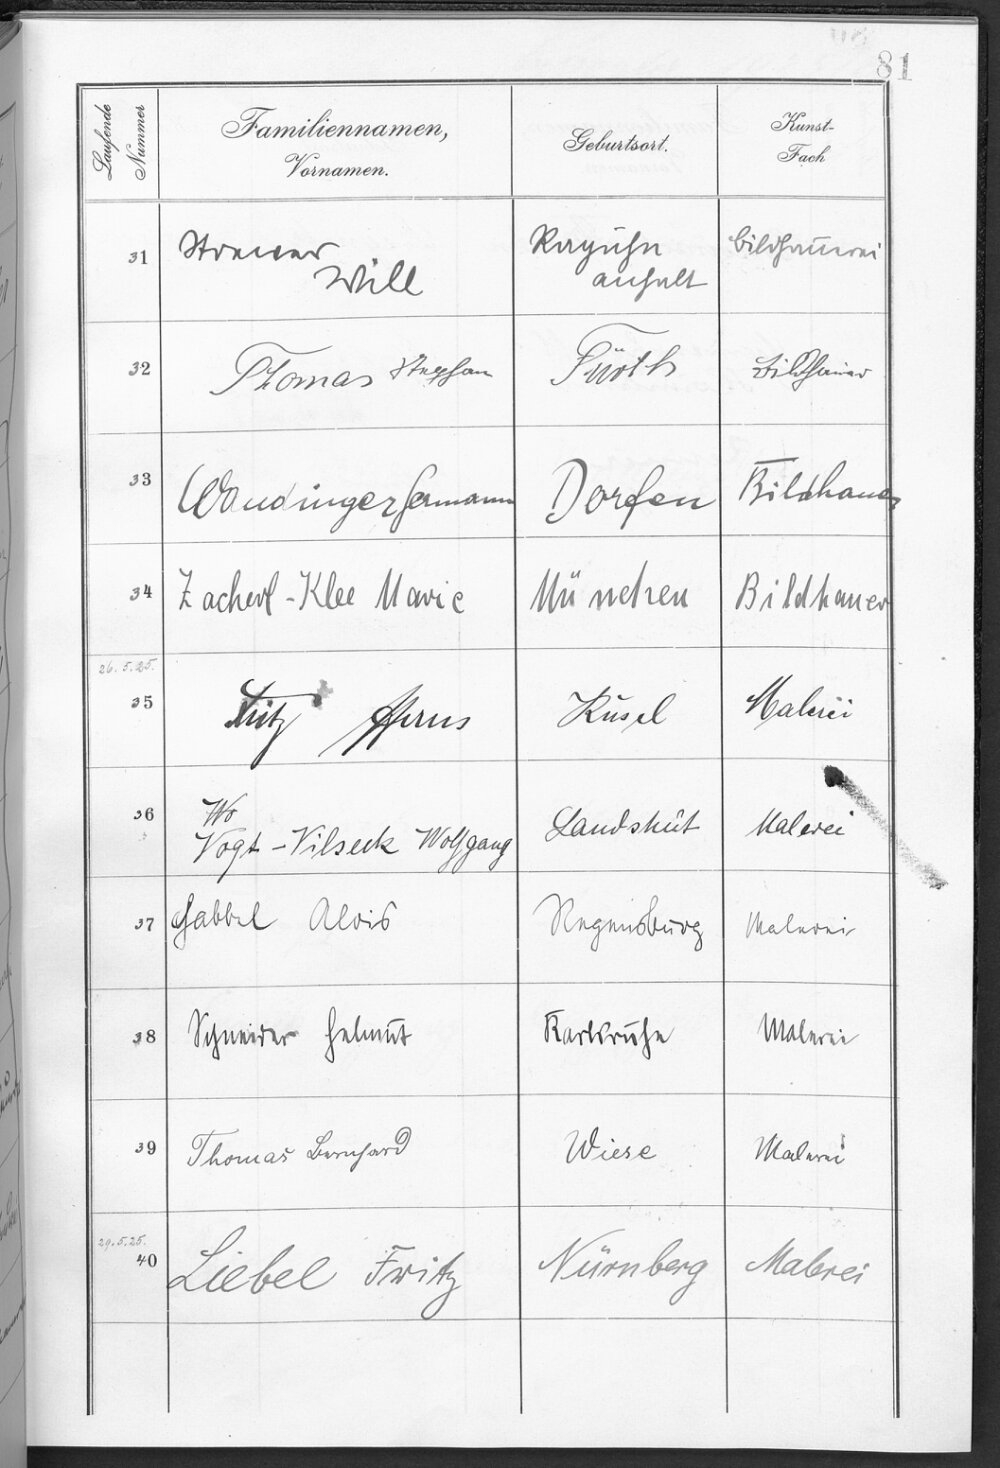 81
Laufende Nummer
Familiennamen, Vornamen.
Geburtsort.
Kunst-Fach
31 Will Raguhn anhalt Bildhauerei
32 Thomas Stephan Fürth Bildhauer
33 Wandinger Hermann Dorfen Bildhauer
34 Zacherl-Klee Marie München Bildhauer
26.5.25.
35 Fritz Kusel Malerei
36 Wo
Vogt-Vilseck Wolfgang Landshut Malerei
37 Gabbel Alois Regensburg Malerei
38 Schneider Helmut Karlsruhe Malerei
39 Thomas Bernhard Wiese Malerei
29.5.25.
40 Liebel Fritz Nürnberg Malerei